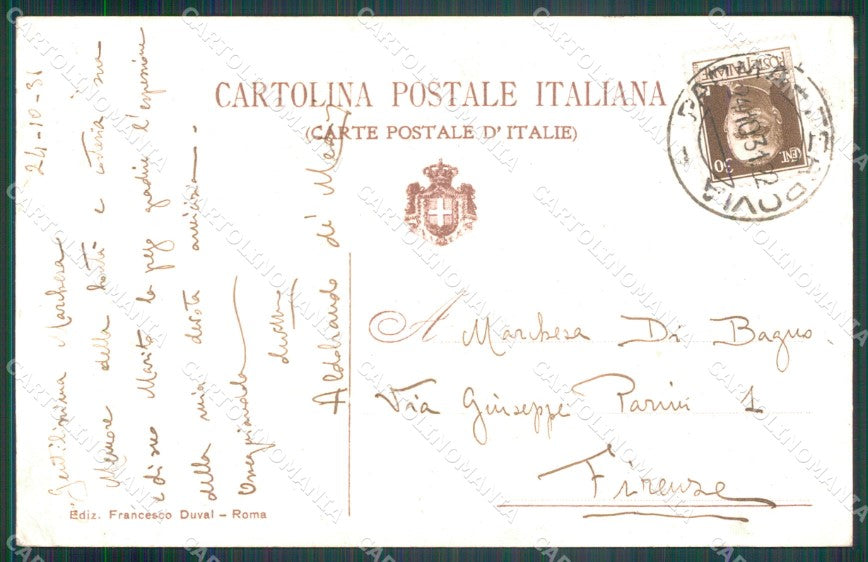 CARTOLINA POSTALE ITALIANA
(CARTE POSTALE D'ITALIE)
24-10-31
Gentilissima Marchesa
Memore della bontà e cortesia sua
e di suo Marito la prego gradire l'espressione
della mia devota amicizia.
Omaggiandola
devotmo
Aldobrando di
A Marchesa Di Bagno.
Via Giuseppe Parini 1
Firenze
Ediz. Francesco Duval - Roma
POSTE ITALIANE
CENT. 30
24.10.31.22
CARTOLINOMANIA